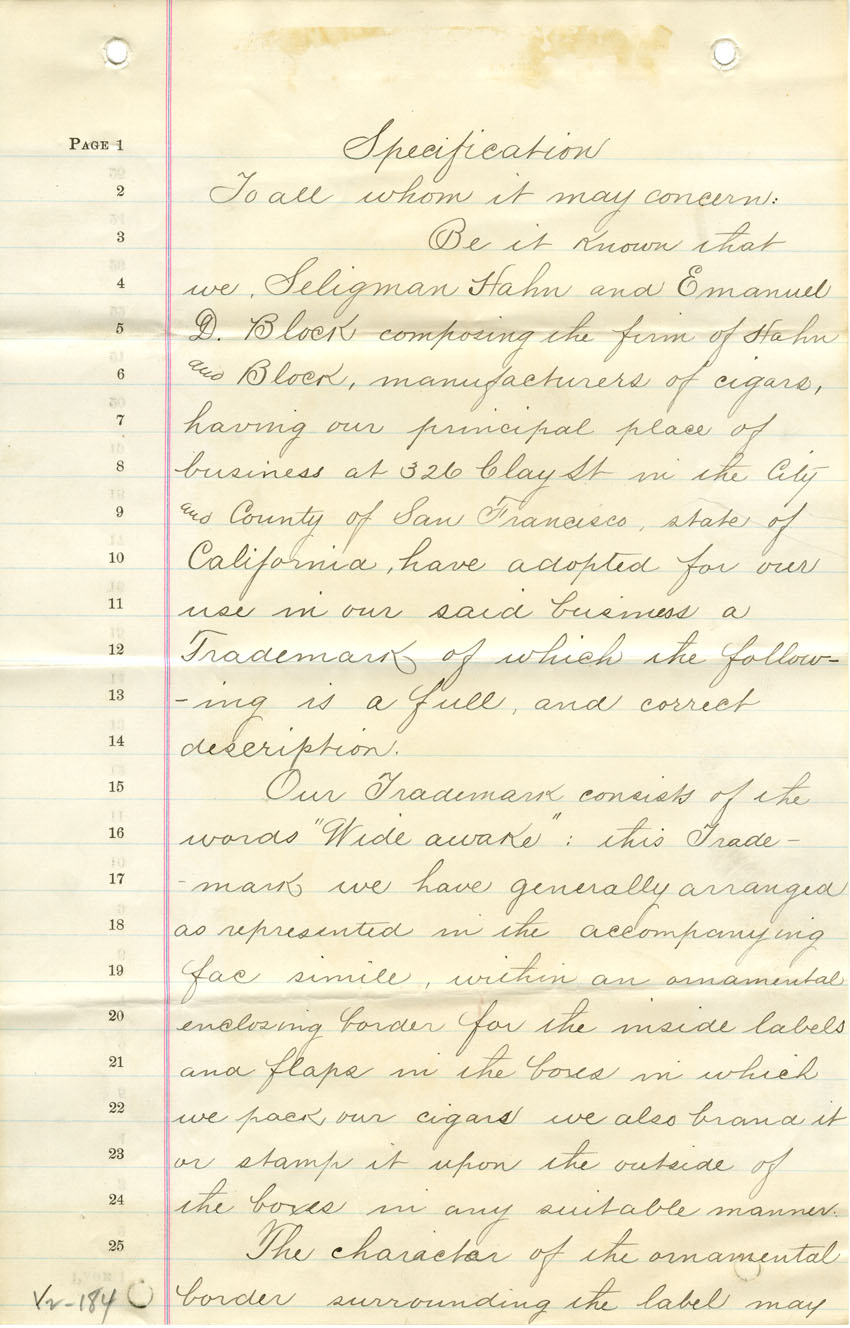 PAGE 1 Specification
2 To all whom it may concern:
3 Be it known that
4 we, Seligman Hahn and Emanuel
5 D. Block composing the firm of Hahn
6 and Block, manufacturers of cigars,
7 having our principal place of
8 business at 326 Clay St in the City
9 and County of San Francisco, state of
10 California, have adopted for our
11 use in our said business a
12 Trademark of which the follow-
13 -ing is a full, and correct
14 description.
15 Our Trademark consists of the
16 words "Wide awake": this Trade-
17 -mark we have generally arranged
18 as represented in the accompanying
19 fac simile, within an ornamental
20 enclosing border for the inside labels
21 and flaps in the boxes in which
22 we pack our cigars we also brand it
23 or stamp it upon the outside of
24 the boxes in any suitable manner.
25 The character of the ornamental
border surrounding the label may
V2-184